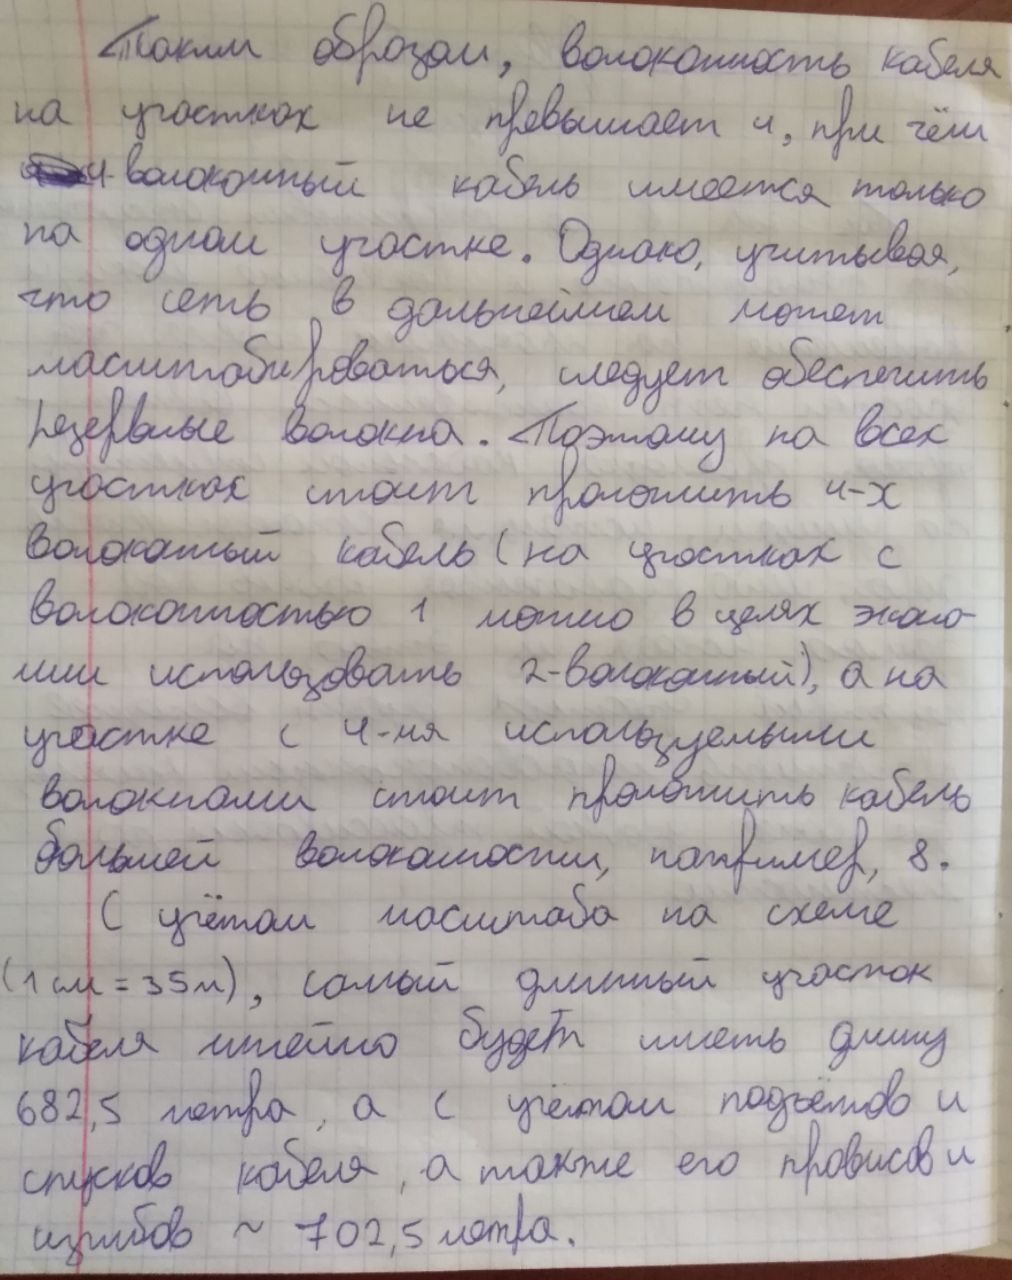 Таким образом, волоконность кабеля
на участках не превышает 4, при чём
4-волоконный кабель имеется только
на одном участке. Однако, учитывая,
что сеть в дальнейшем может
масштабироваться, следует обеспечить
резервные волокна. Поэтому на всех
участках стоит проложить 4-х
волоконный кабель (на участках с
волоконностью 1 можно в целях эконо-
мии использовать 2-волоконный), а на
участке с 4-мя используемыми
волокнами стоит проложить кабель
большей волоконности, например, 8.
С учётом масштаба на схеме
(1 см = 35 м), самый длинный участок
кабеля линейно будет иметь длину
682,5 метра, а с учётом подъёмов и
спусков кабеля, а также его провисов и
изгибов ~ 702,5 метра.